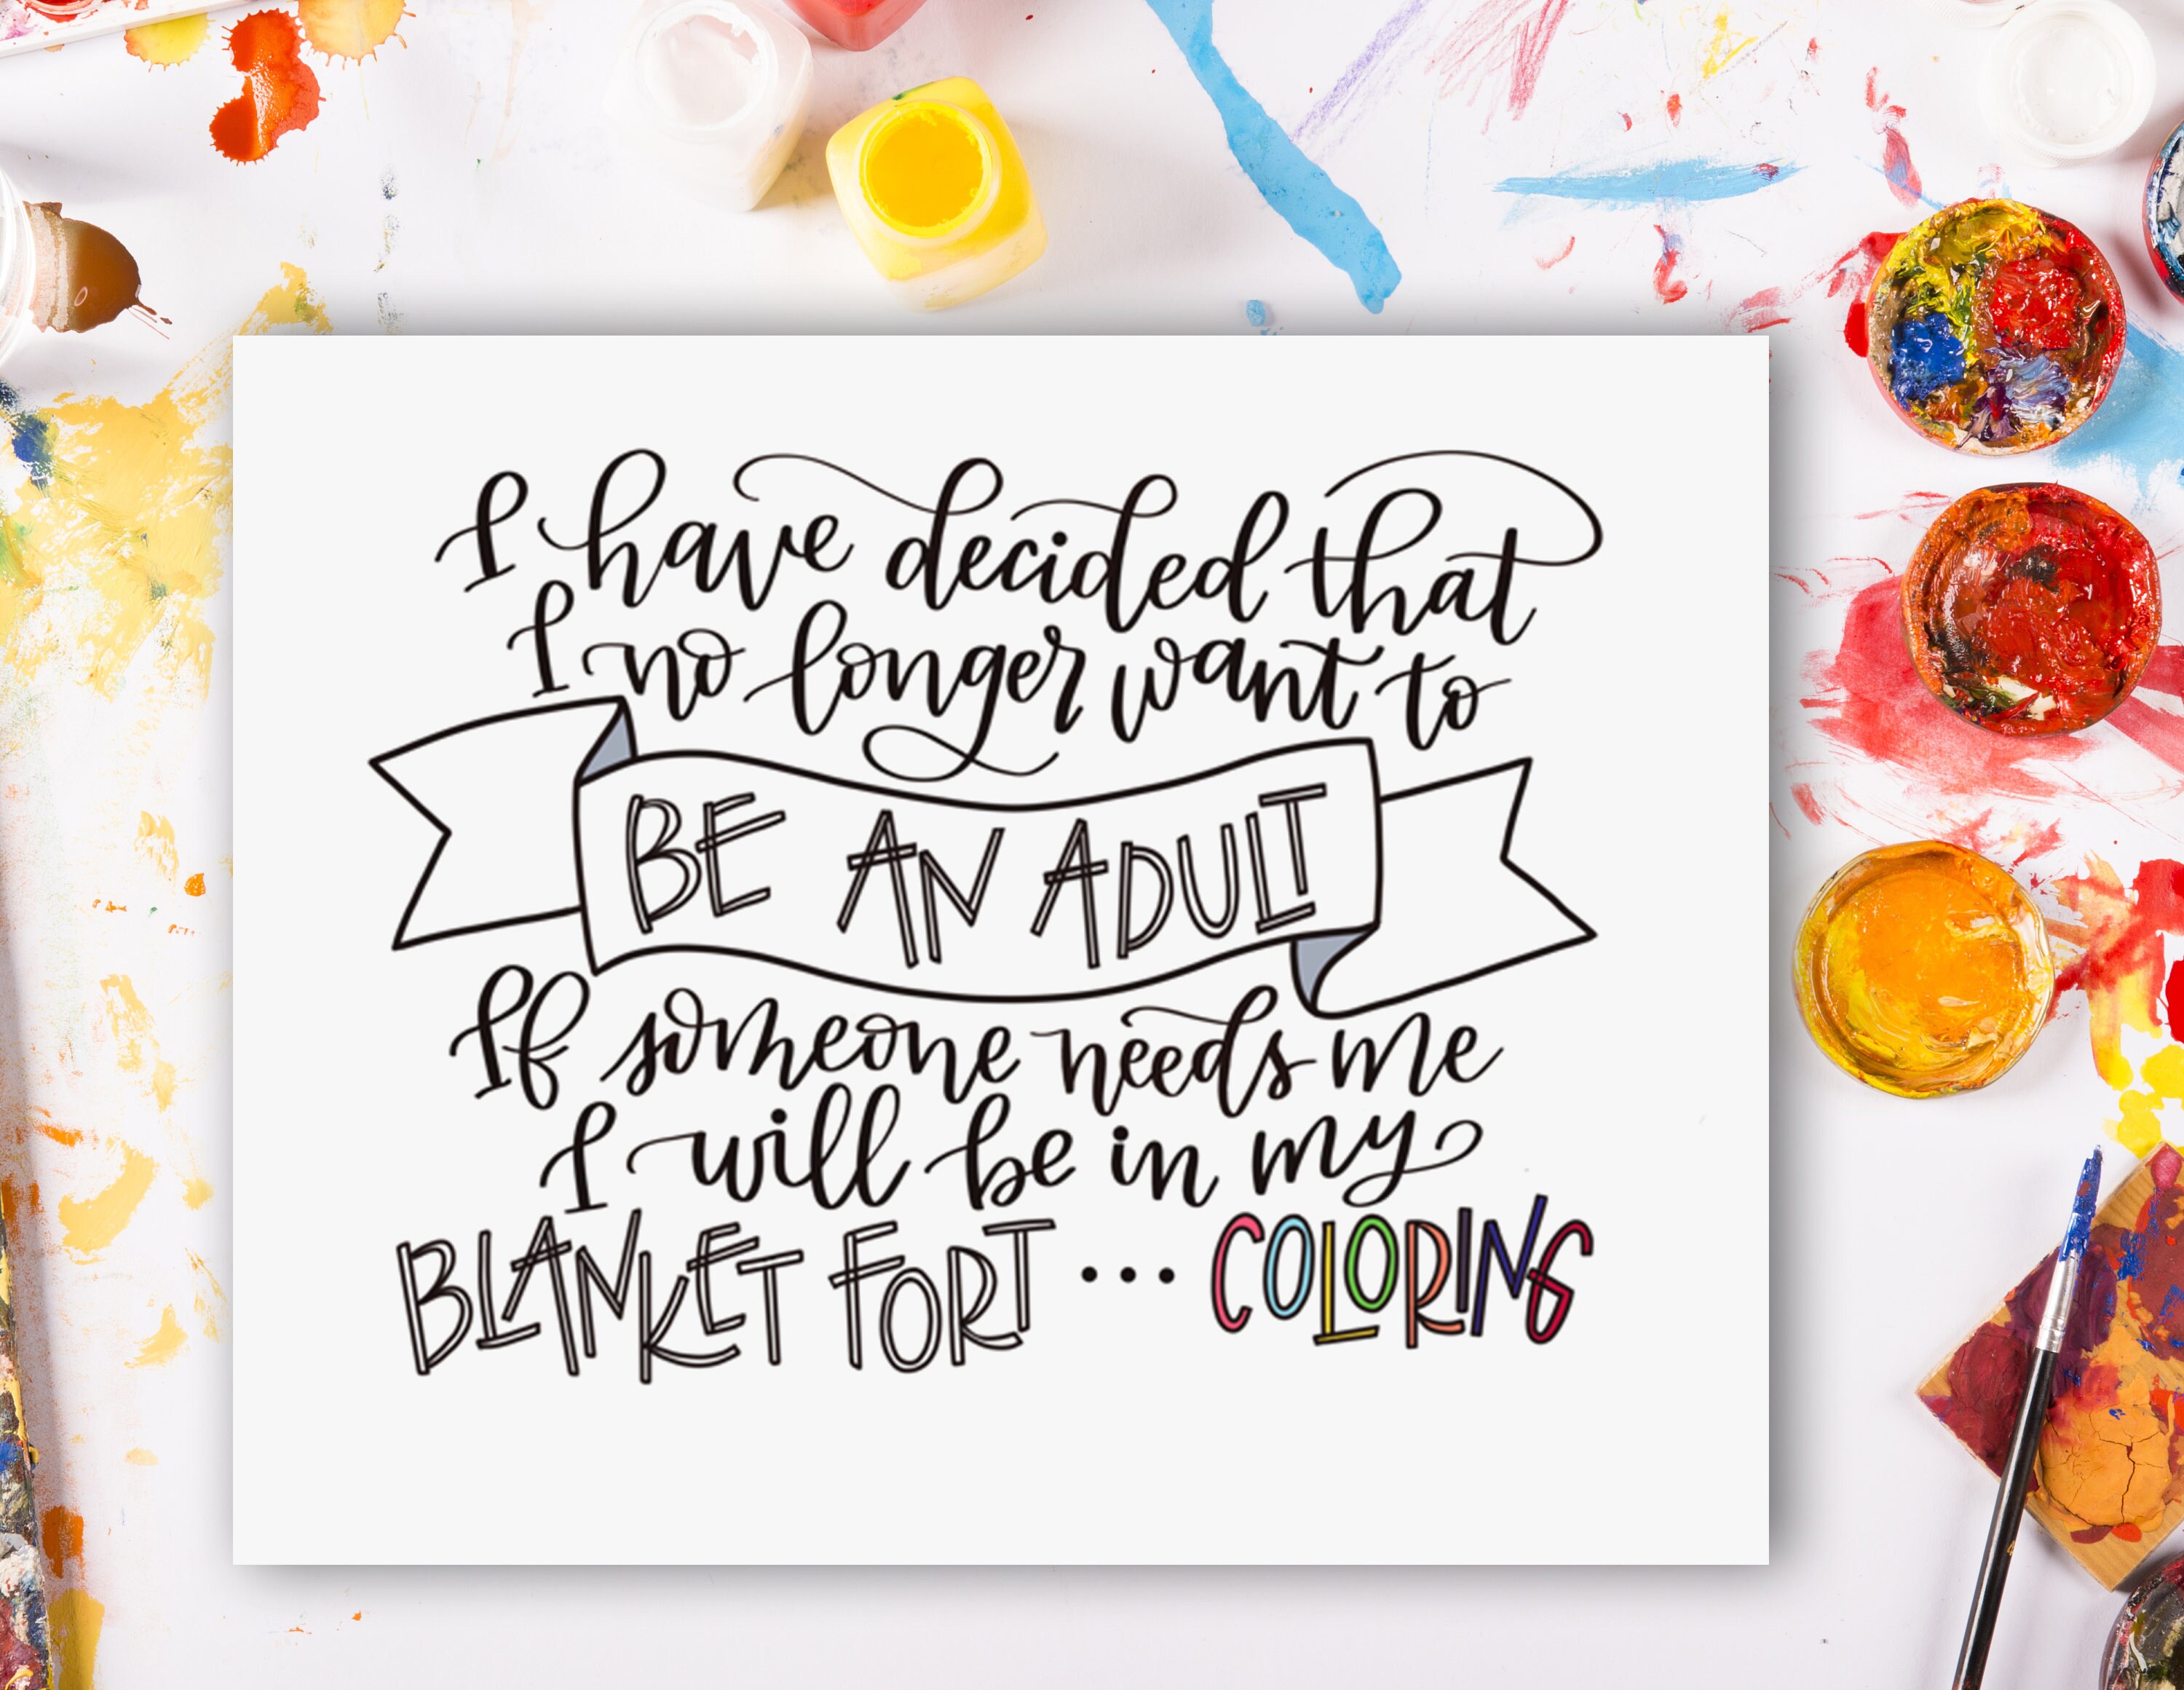 I have decided that
I no longer want to
BE AN ADULT
If someone needs me
I will be in my
BLANKET FORT... COLORING